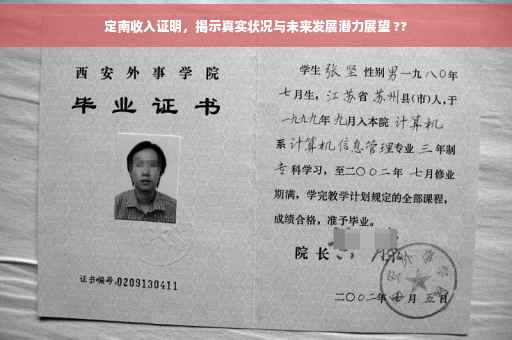 定南收入证明，揭示真实状况与未来发展潜力展望 ??
西安外事学院
毕业证书
证书编号:0209130411
学生 张坚 性别 男 一九八〇年
七月生，江苏省 苏州县(市)人，于
一九九九年 九月入本院 计算机
系 计算机信息管理专业 三 年制
专科学习，至二〇〇二年 七月修业
期满，学完教学计划规定的全部课程，
成绩合格，准予毕业。
院长
二〇〇二年 七月 五日